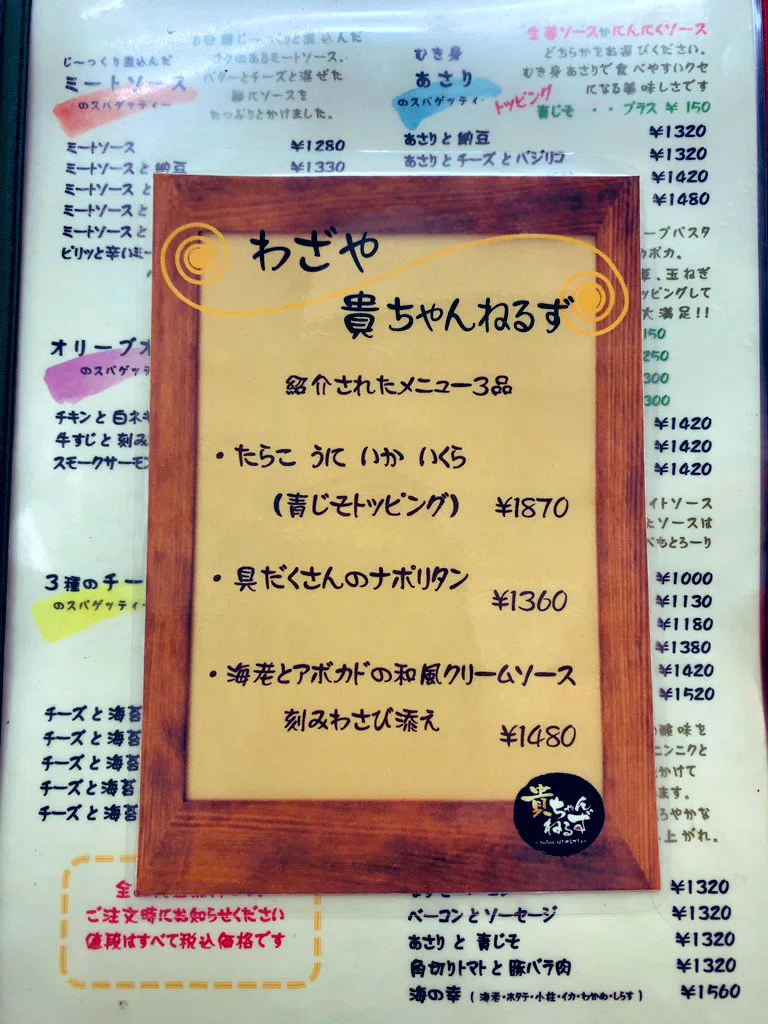 じ〜っくり煮込んだ
ミートソース
のスパゲッティー
コクのあるミートソース。
バターとチーズと混ぜた
麺にソースを
たっぷりとかけました。
ミートソース ¥1280
ミートソースと納豆 ¥1330
ミートソースと
ミートソースと
ミートソースと
ピリッと辛いミー
オリーブオ
のスパゲッテ
チキンと白ネギ
牛すじと刻み
スモークサーモン
3種のチー
のスパゲッティー
チーズと海苔
チーズと海苔
チーズと海苔
チーズと海苔
チーズと海苔
ご注文時にお知らせください
値段はすべて税込価格です
むき身
あさり
のスパゲッティ・
生姜ソースかにんにくソース
どちらかをお選びください。
むき身あさりで食べやすいクセ
になる美味しさです
トッピング
青じそ ・・プラス ¥150
あさりと納豆 ¥1320
あさりとチーズとバジリコ ¥1320
¥1420
¥1480
ープパスタ
カポカ。
、玉ねぎ
ッピングして
大満足!!
150
250
300
300
¥1420
¥1420
¥1420
イトソース
ソースは
べもとろーり
¥1000
¥1130
¥1180
¥1380
¥1420
¥1520
酸味を
ニンニクと
かけて
ます。
ろやかな
上がれ。
¥1320
ベーコンとソーセージ ¥1320
あさりと青じそ ¥1320
角切りトマトと豚バラ肉 ¥1320
海の幸(海老・ホタテ・小柱・イカ・わかめ・しらす) ¥1560
わざや
貴ちゃんねるず
紹介されたメニュー3品
・たらこ うに いか いくら
(青じそトッピング) ¥1870
・具だくさんのナポリタン
¥1360
・海老とアボカドの和風クリームソース
刻みわさび添え
¥1480
貴ちゃん
ねるず